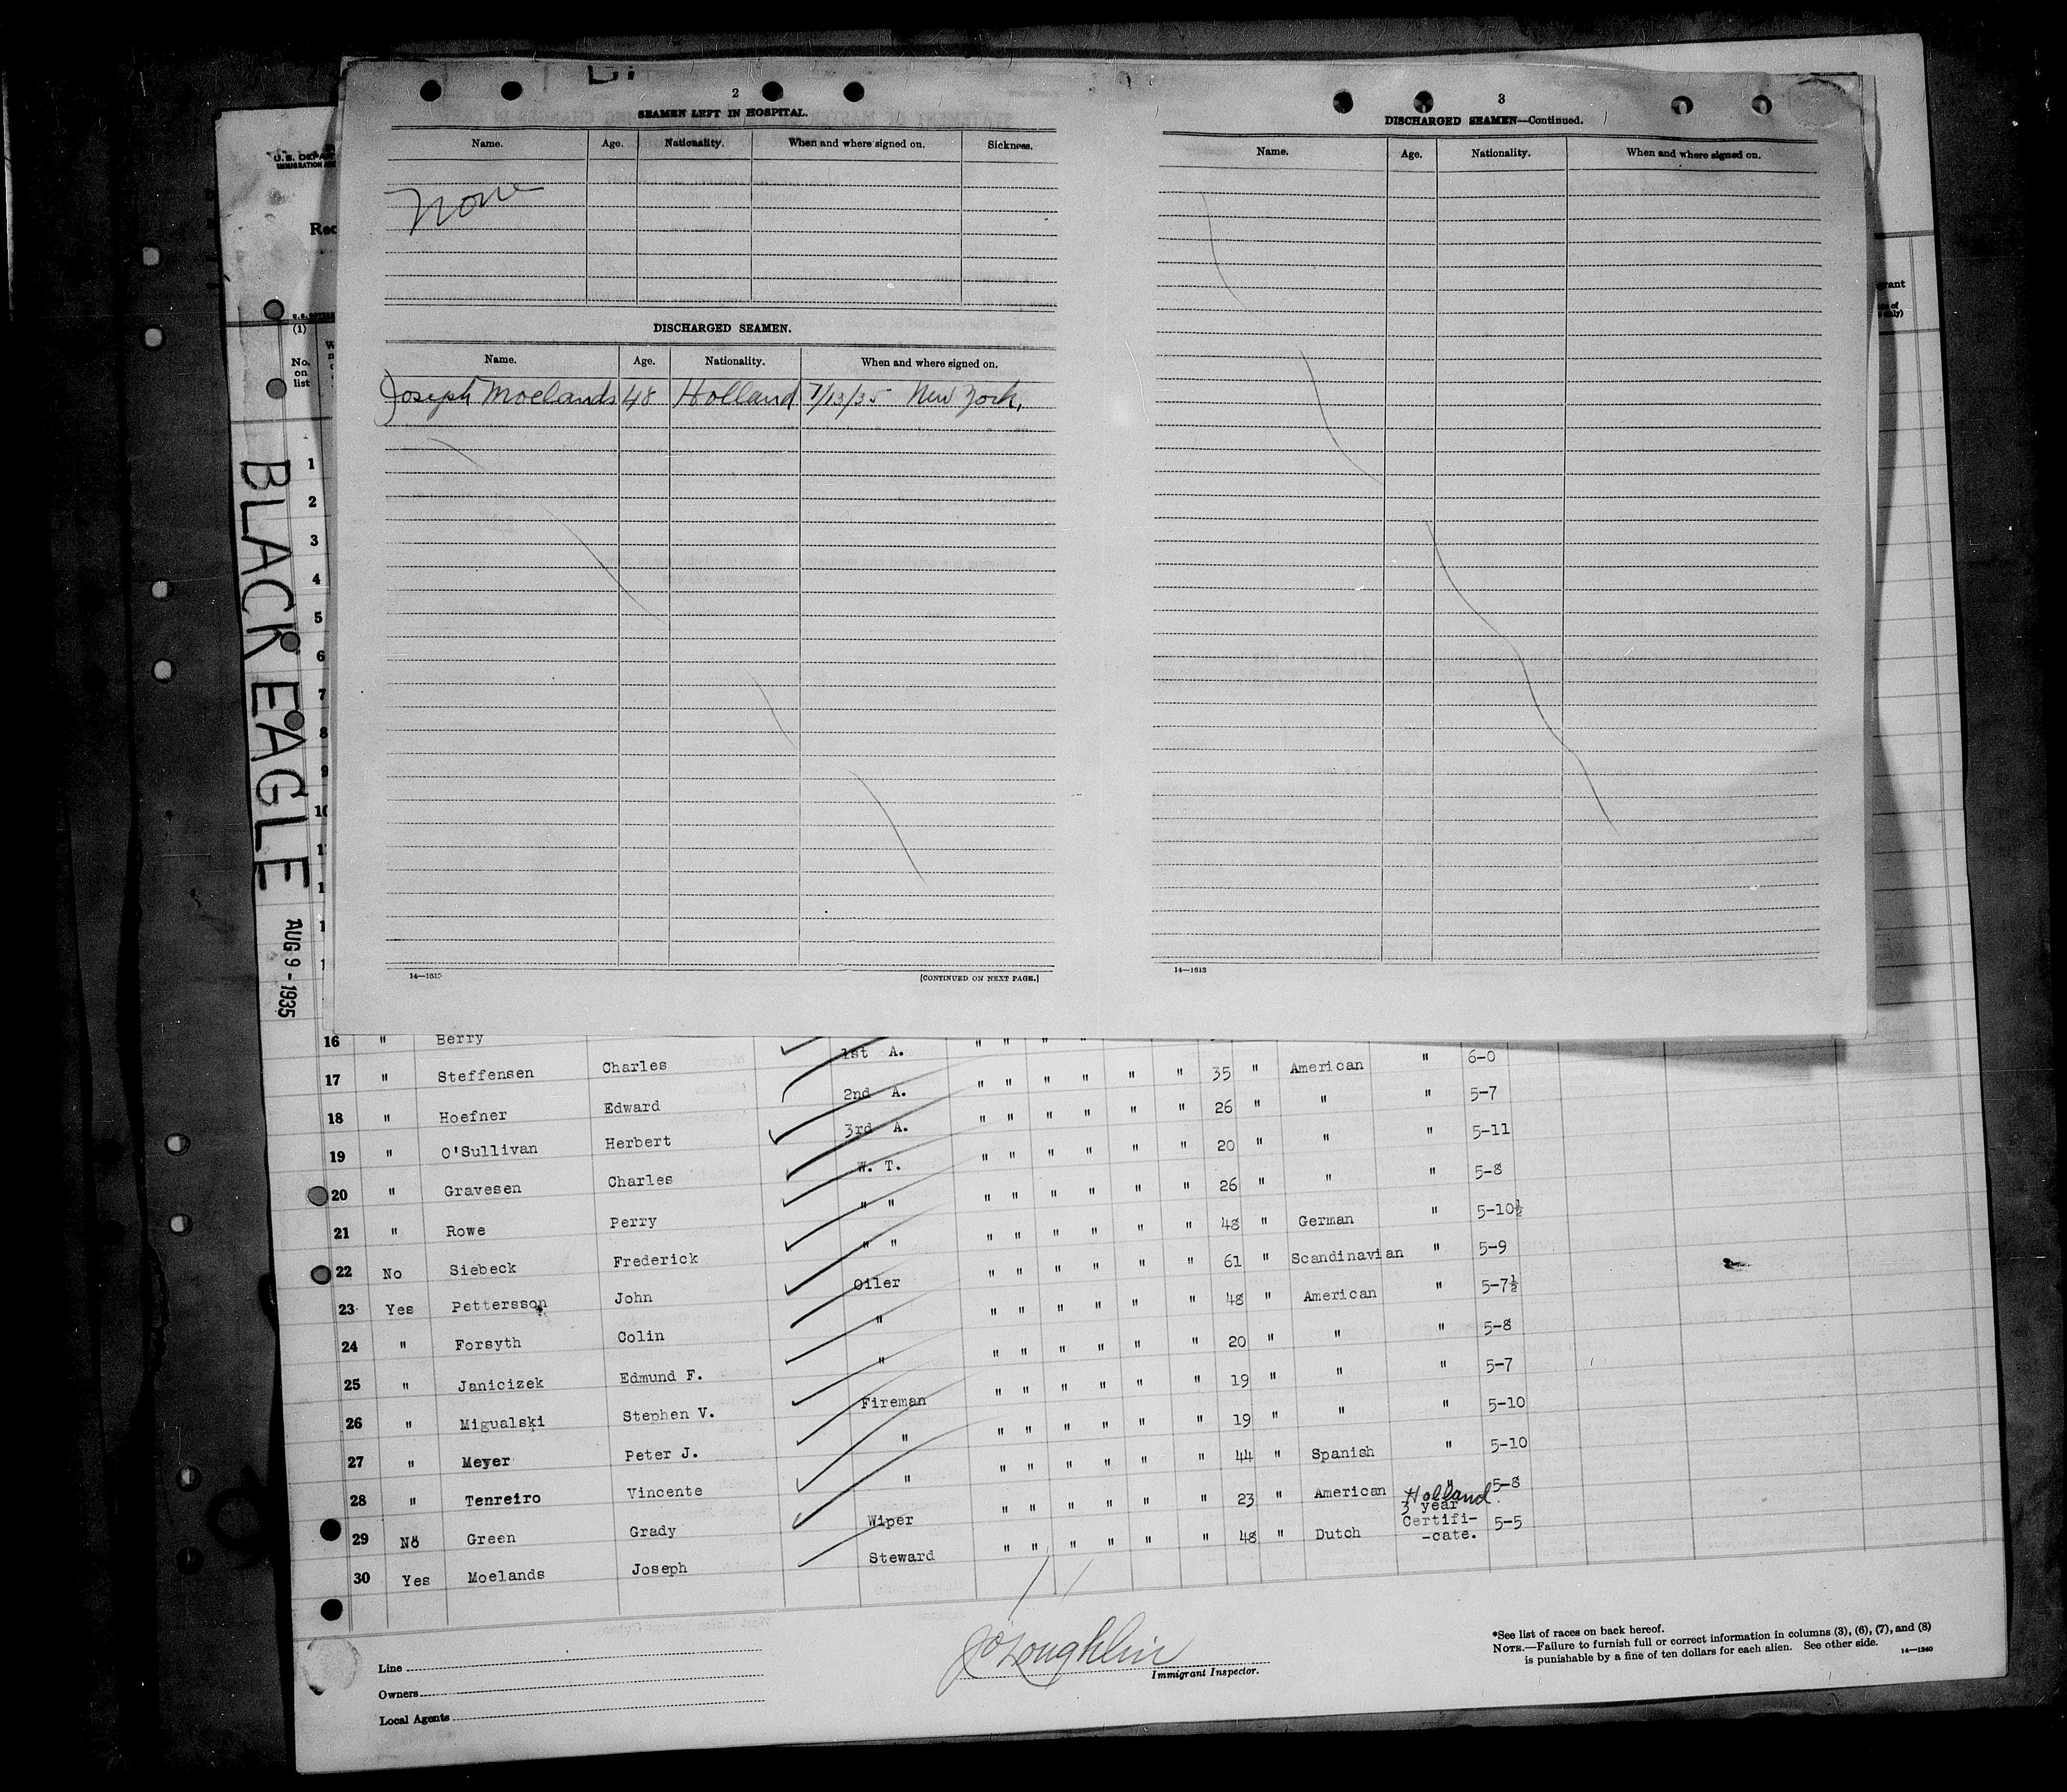 2
SEAMEN LEFT IN HOSPITAL.
Name. Age. Nationality. When and where signed on. Sickness.
None
DISCHARGED SEAMEN.
Name. Age. Nationality. When and where signed on.
Joseph Moelands 48 Holland 7/13/35 New York,
[CONTINUED ON NEXT PAGE.]
3
DISCHARGED SEAMEN—Continued.
Name. Age. Nationality. When and where signed on.
14—1613
(1)
No.
on
list
BLACK EAGLE
AUG 9 - 1935
1
2
3
4
5
6
7
8
9
16 " Berry 1st A. " " " "
17 " Steffensen Charles 2nd A. " " " " " " 35 " American " 6-0
18 " Hoefner Edward 3rd A. " " " " " " 26 " " " 5-7
19 " O'Sullivan Herbert W. T. " " " " " " 20 " " " 5-11
20 " Gravesen Charles " " " " " " " " 26 " " " 5-8
21 " Rowe Perry " " " " " " " " 48 " German " 5-10½
22 No Siebeck Frederick Oiler " " " " " " 61 " Scandinavian " 5-9
23 Yes Pettersson John " " " " " " " 48 " American " 5-7½
24 " Forsyth Colin " " " " " " " 20 " " " 5-8
25 " Janicizek Edmund F. Fireman " " " " " " 19 " " " 5-7
26 " Migualski Stephen V. " " " " " " " 19 " " " 5-10
27 " Meyer Peter J. " " " " " " " 44 " Spanish " 5-10
28 " Tenreiro Vincente Wiper " " " " " " 23 " American " 5-8
29 No Green Grady Steward " " " " " " 48 " Dutch Holland 3 year Certifi- -cate. 5-5
30 Yes Moelands Joseph
Line
Owners
Local Agents
J O'Loughlin
Immigrant Inspector.
*See list of races on back hereof.
NOTE.—Failure to furnish full or correct information in columns (3), (6), (7), and (8)
is punishable by a fine of ten dollars for each alien. See other side.
14—1240